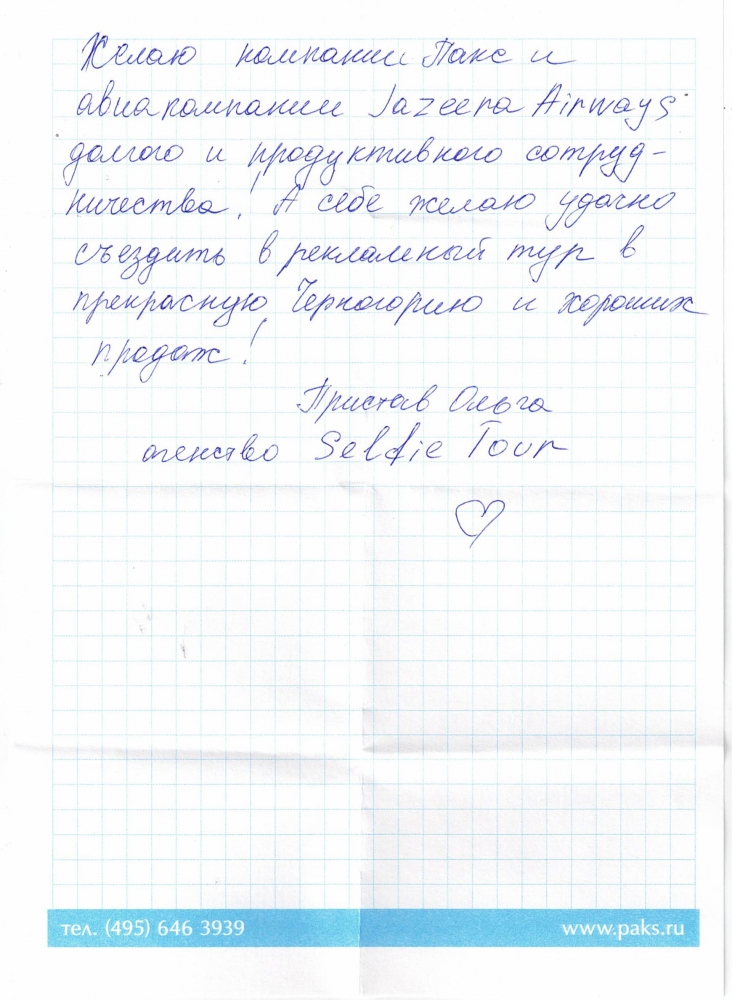 Желаю компании Пакс и
авиакомпании Jazeera Airways
долгого и продуктивного сотруд-
ничества! А себе желаю удачно
съездить в рекламный тур в
прекрасную Черногорию и хороших
продаж!
Пристав Ольга
агенство Selfie Tour
тел. (495) 646 3939
www.paks.ru